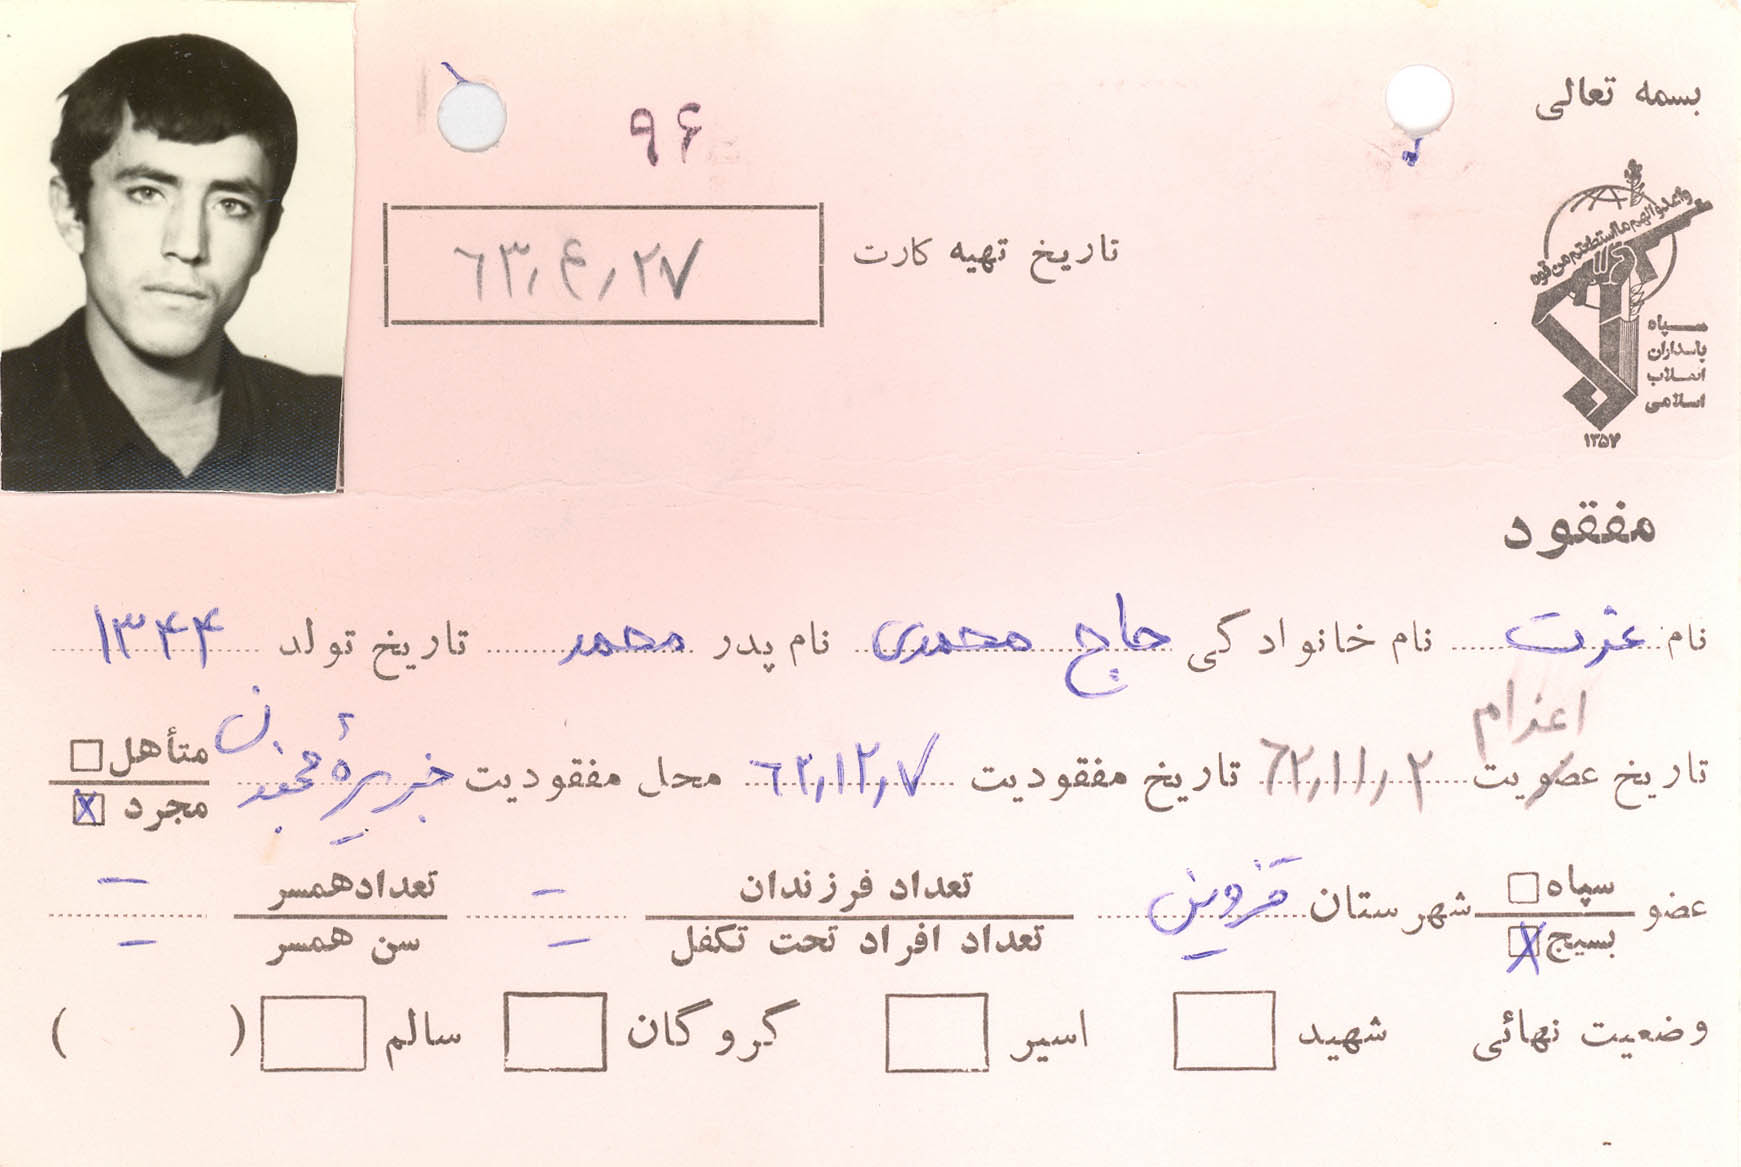 بسمه تعالی
۹۶
تاریخ تهیه کارت ۶۳٫۴٫۲۷
واعدوا لهم ما استطعتم من قوه
سپاه
پاسداران
انقلاب
اسلامی
۱۳۵۷
مفقود
نام عزت نام خانوادگی حاج محمدی نام پدر محمد تاریخ تولد ۱۳۴۴
اعزام
تاریخ عضویت ۶۲٫۱۱٫۲ تاریخ مفقودیت ۶۲٫۱۲٫۷ محل مفقودیت جزیرهٔ مجنون متأهل
مجرد X
عضو سپاه بسیج X شهرستان قزوین تعداد فرزندان – تعداد همسر –
تعداد افراد تحت تکفل – سن همسر –
وضعیت نهائی شهید اسیر گروگان سالم ( )